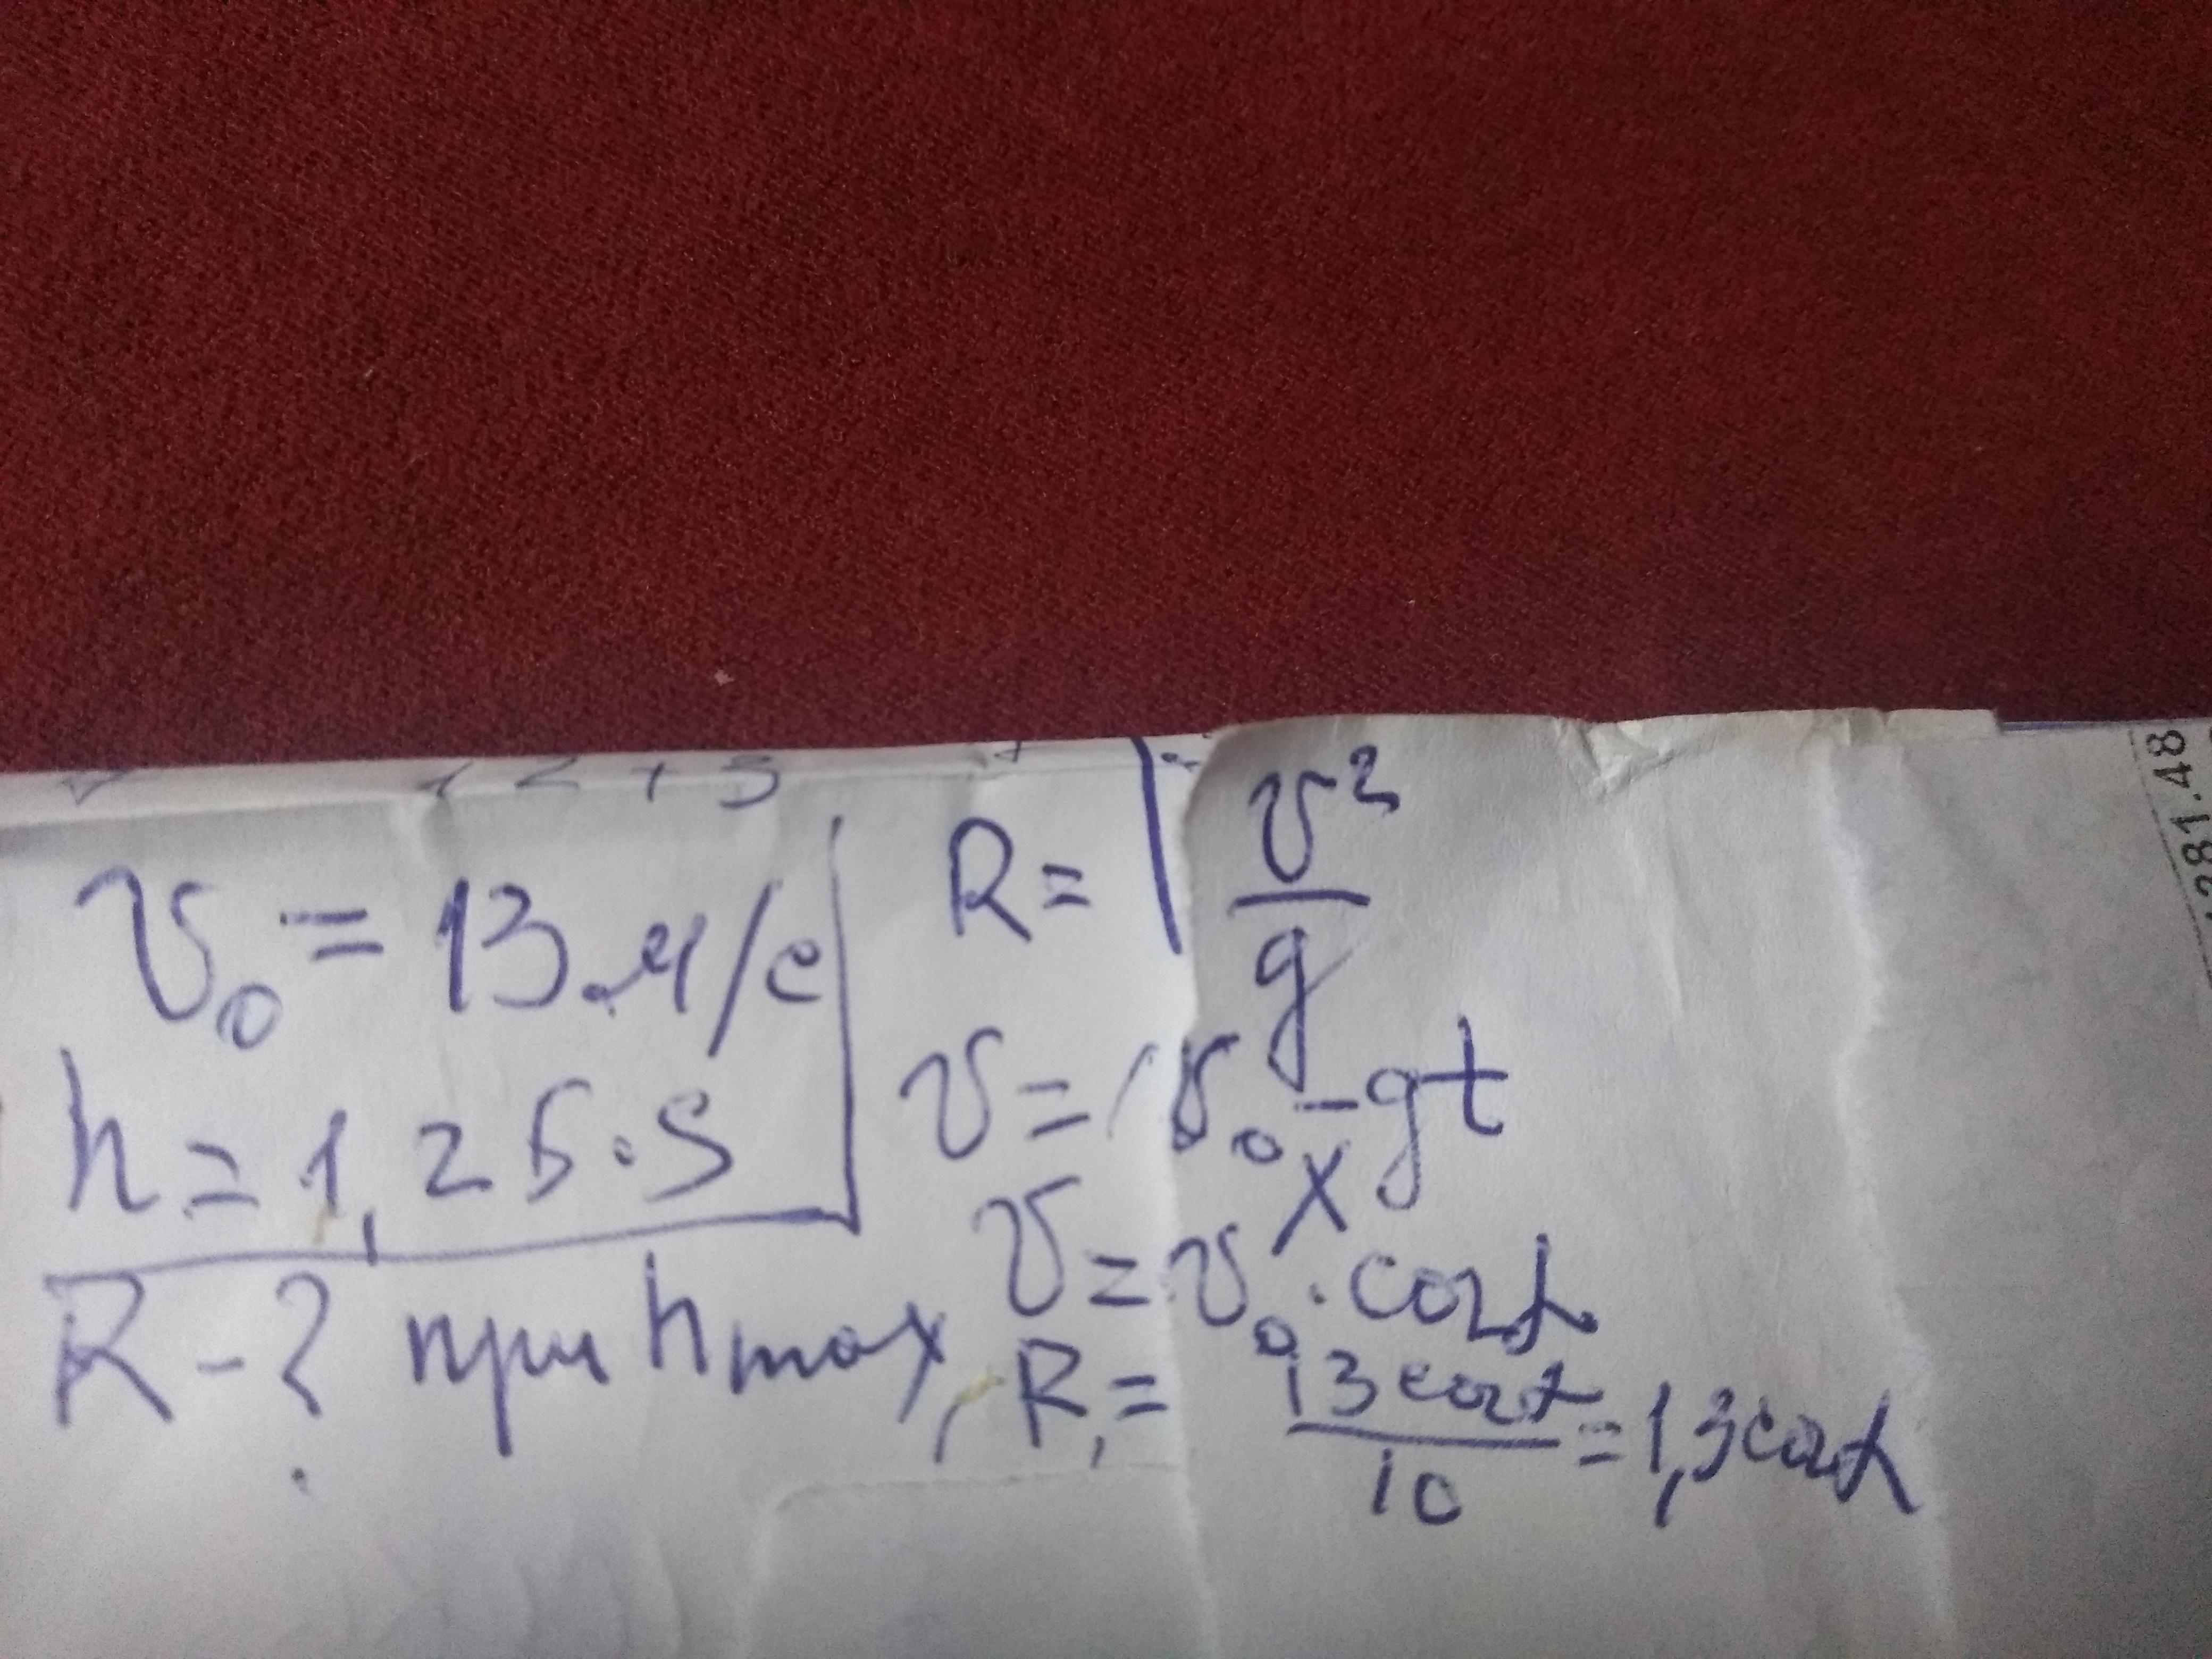 2 + 3
v₀ = 13 м/с
h = 1,25·S
R - ? при hmax,
R = v²/g
v = v₀ₓ - gt
v = v₀ · cosα
R₁ = 13cosα/10 = 1,3cosα
281.48